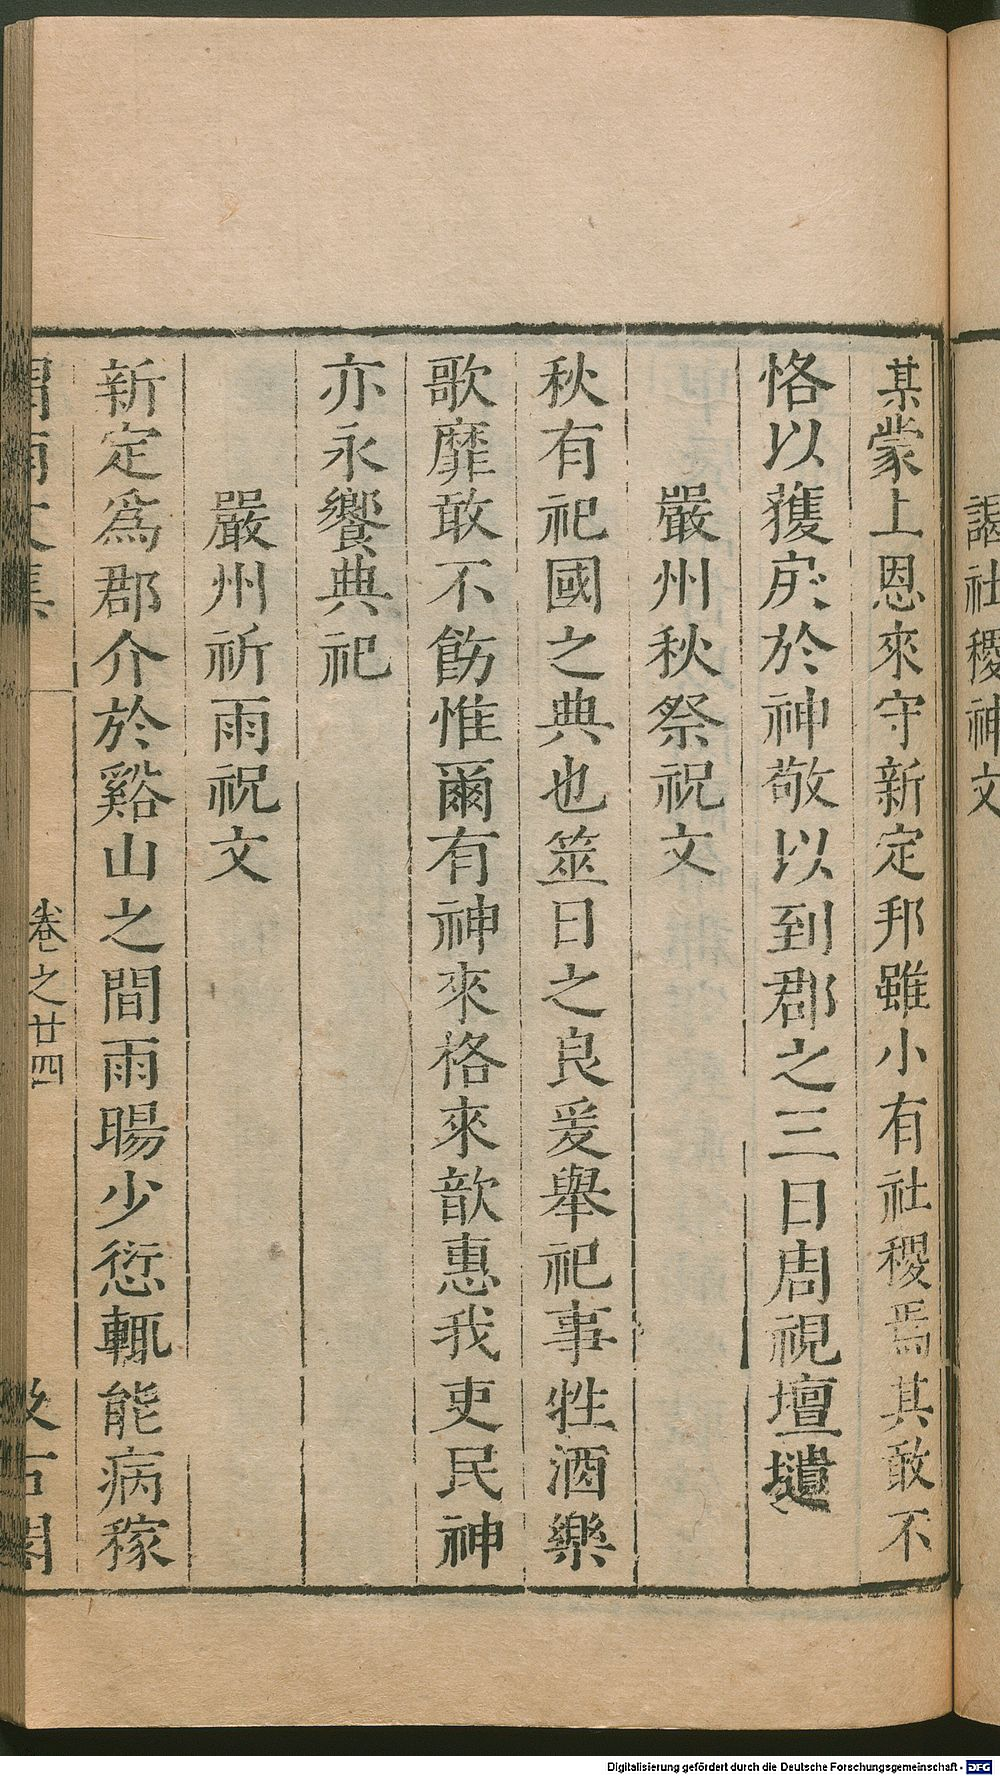 謁社稷神文
某蒙上恩來守新定邦雖小有社稷焉其敢不
恪以獲戾於神敬以到郡之三日周視壇壝
嚴州秋祭祝文
秋有祀國之典也筮日之良爰舉祀事牲酒樂
歌靡敢不飭惟爾有神來格來歆惠我吏民神
亦永饗典祀
嚴州祈雨祝文
新定爲郡介於谿山之間雨暘少愆輒能病稼
渭南文集 卷之廿四 汲古閣
Digitalisierung gefördert durch die Deutsche Forschungsgemeinschaft - DFG